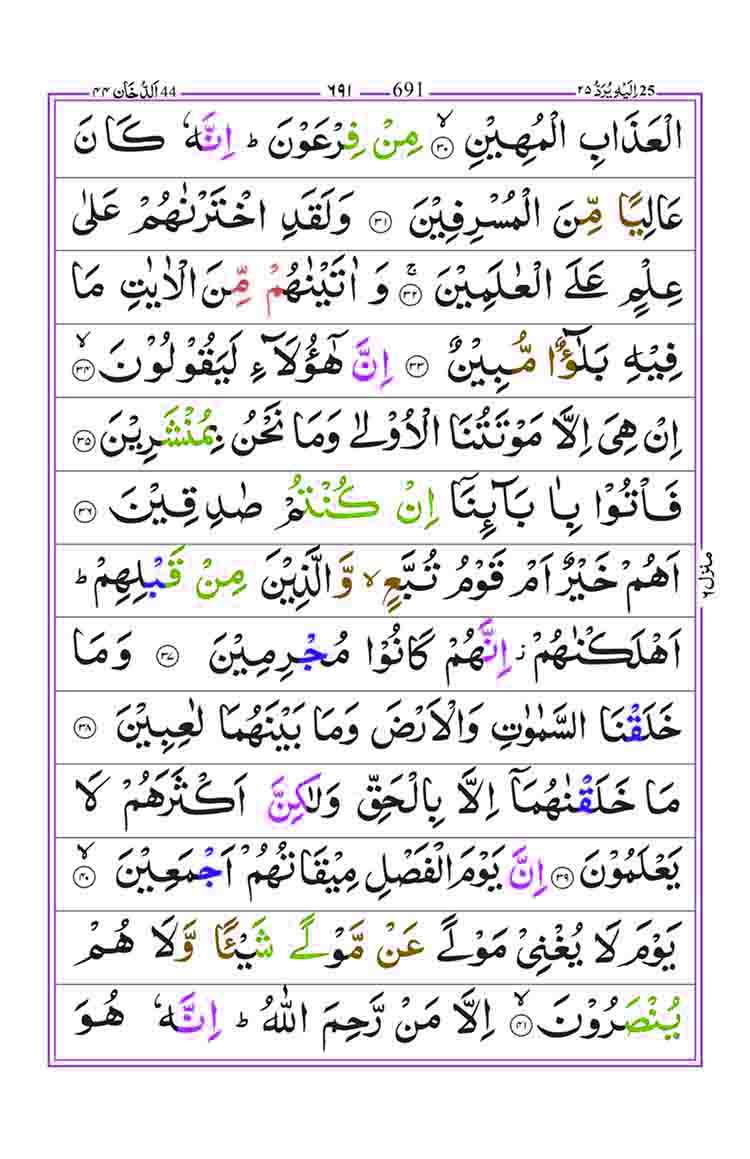 25 اِلَیْهِ یُرَدُّ ۲۵ 691 ۶۹۱ 44 اَلدُّخَان ۴۴
الْعَذَابِ الْمُهِیْنِ ۙ﴿۳۰﴾ مِنْ فِرْعَوْنَ ؕ اِنَّهٗ كَانَ
عَالِیًا مِّنَ الْمُسْرِفِیْنَ ﴿۳۱﴾ وَلَقَدِ اخْتَرْنٰهُمْ عَلٰی
عِلْمٍ عَلَی الْعٰلَمِیْنَ ۚ﴿۳۲﴾ وَ اٰتَیْنٰهُمْ مِّنَ الْاٰیٰتِ مَا
فِیْهِ بَلٰٓؤٌا مُّبِیْنٌ ﴿۳۳﴾ اِنَّ هٰۤؤُلَآءِ لَیَقُوْلُوْنَ ۙ﴿۳۴﴾
اِنْ هِیَ اِلَّا مَوْتَتُنَا الْاُوْلٰی وَمَا نَحْنُ بِمُنْشَرِیْنَ ﴿۳۵﴾
فَاْتُوْا بِاٰبَآئِنَاۤ اِنْ كُنْتُمْ صٰدِقِیْنَ ﴿۳۶﴾
اَهُمْ خَیْرٌ اَمْ قَوْمُ تُبَّعٍ ۙ وَّالَّذِیْنَ مِنْ قَبْلِهِمْ ؕ
اَهْلَكْنٰهُمْ ؗ اِنَّهُمْ كَانُوْا مُجْرِمِیْنَ ﴿۳۷﴾ وَمَا
خَلَقْنَا السَّمٰوٰتِ وَالْاَرْضَ وَمَا بَیْنَهُمَا لٰعِبِیْنَ ﴿۳۸﴾
مَا خَلَقْنٰهُمَاۤ اِلَّا بِالْحَقِّ وَلٰكِنَّ اَكْثَرَهُمْ لَا
یَعْلَمُوْنَ ﴿۳۹﴾ اِنَّ یَوْمَ الْفَصْلِ مِیْقَاتُهُمْ اَجْمَعِیْنَ ۙ﴿۴۰﴾
یَوْمَ لَا یُغْنِیْ مَوْلًی عَنْ مَّوْلًی شَیْـًٔا وَّلَا هُمْ
یُنْصَرُوْنَ ۙ﴿۴۱﴾ اِلَّا مَنْ رَّحِمَ اللّٰهُ ؕ اِنَّهٗ هُوَ
منزل ۶